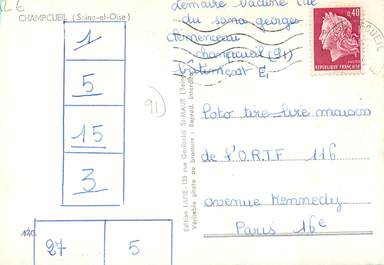 CHAMPCUEIL (Seine-et-Oise)
1
5
15
3
27 5
91)
Lemaire
du sana georges
clemenceau
champcueil (91)
Bâtiment E,
0,40
REPUBLIQUE FRANÇAISE
Poto tire-lire maison
de l'O.R.T.F 116
avenue Kennedy
Paris 16e
Edition LAPIE - 123 rue Garibaldi St-MAUR
Véritable photo au bromure - Reprod. interdite